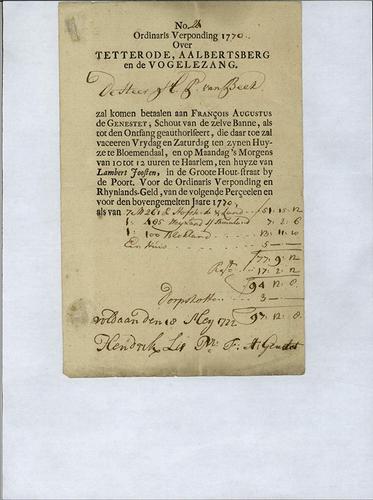 No.
Ordinaris Verponding 1770.
Over
TETTERODE, AALBERTSBERG
en de VOGELEZANG.
De Heer P. van Beek
zal komen betaalen aan FRANÇOIS AUGUSTUS
DE GENESTET, Schout van de zelve Banne, als
tot den Ontfang geauthoriseert, die daar toe zal
vaceeren Vrydag en Zaturdag ten zynen Huy-
ze te Bloemendal, en op Maandag's Morgens
van 10 tot 12 uuren te Haarlem, ten huyze van
Lambert Joosten, in de Groote Hout-straat by
de Poort. Voor de Ordinaris Verponding en
Rhynlands-Geld, van de volgende Perçeelen en
voor den bovengemelten Jaare 1770,
als van 7 M 261 R Hofstede & Land 51: 15: 12
1: 495 7: 2: 6
1: 100 Blekland 13: 11: 10
Een Huis 5 —
77: 9: 12
17: 2: 12
94: 12: 8
Dorpskosten 3 —
97: 12: 8
voldaan den 18 Mey
Hendrik F: A: Genestet